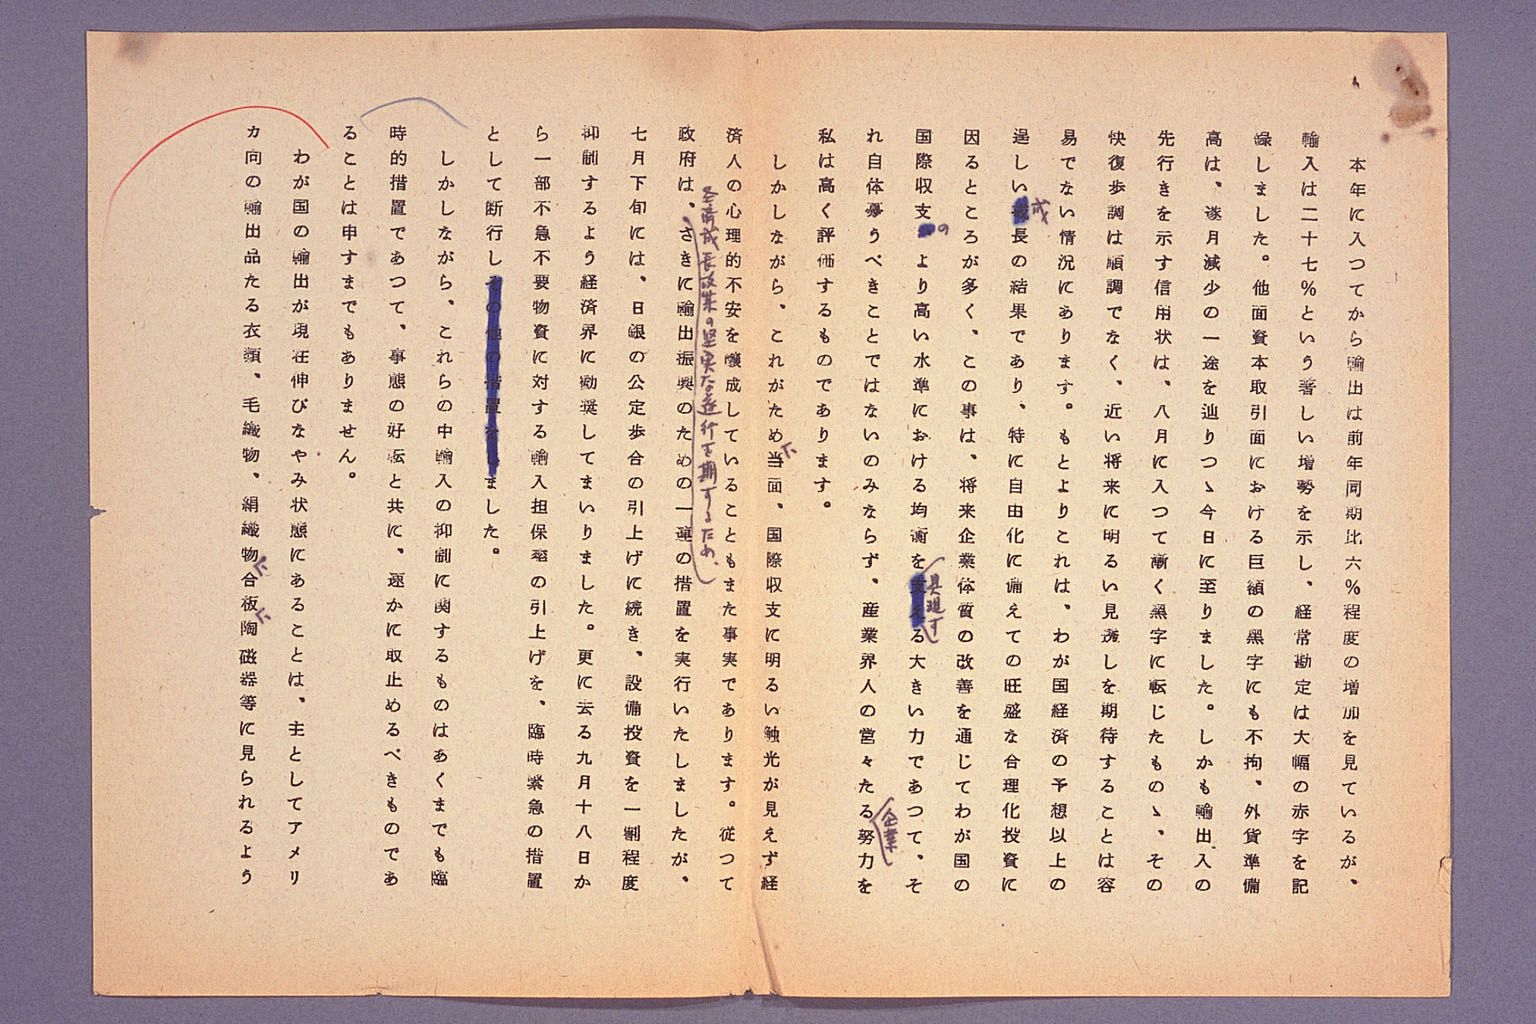 本年に入つてから輸出は前年同期比六％程度の増加を見ているが、
輸入は二十七％という著しい増勢を示し、経常勘定は大幅の赤字を記
録しました。他面資本取引面における巨額の黒字にも不拘、外貨準備
高は、逐月減少の一途を辿りつゝ今日に至りました。しかも輸出入の
先行きを示す信用状は、八月に入つて漸く黒字に転じたものゝ、その
快復歩調は順調でなく、近い将来に明るい見透しを期待することは容
易でない情況にあります。もとよりこれは、わが国経済の予想以上の
逞しい成長の結果であり、特に自由化に備えての旺盛な合理化投資に
因るところが多く、この事は、将来企業体質の改善を通じてわが国の
国際収支のより高い水準における均衡を具現する大きい力であつて、そ
れ自体憂うべきことではないのみならず、産業界人の営々たる企業努力を
私は高く評価するものであります。
しかしながら、これがため当面、国際収支に明るい触光が見えず経
済人の心理的不安を醸成していることもまた事実であります。従つて
経済成長政策の堅実な遂行を期するため、
政府は、さきに輸出振興のための一連の措置を実行いたしましたが、
七月下旬には、日銀の公定歩合の引上げに続き、設備投資を一割程度
抑制するよう経済界に勧奨してまいりました。更に去る九月十八日か
ら一部不急不要物資に対する輸入担保率の引上げを、臨時緊急の措置
として断行しその他の措置をしました。
しかしながら、これらの中輸入の抑制に関するものはあくまでも臨
時的措置であつて、事態の好転と共に、速かに取止めるべきものであ
ることは申すまでもありません。
わが国の輸出が現在伸びなやみ状態にあることは、主としてアメリ
カ向の輸出品たる衣類、毛織物、絹織物、合板、陶磁器等に見られるよう